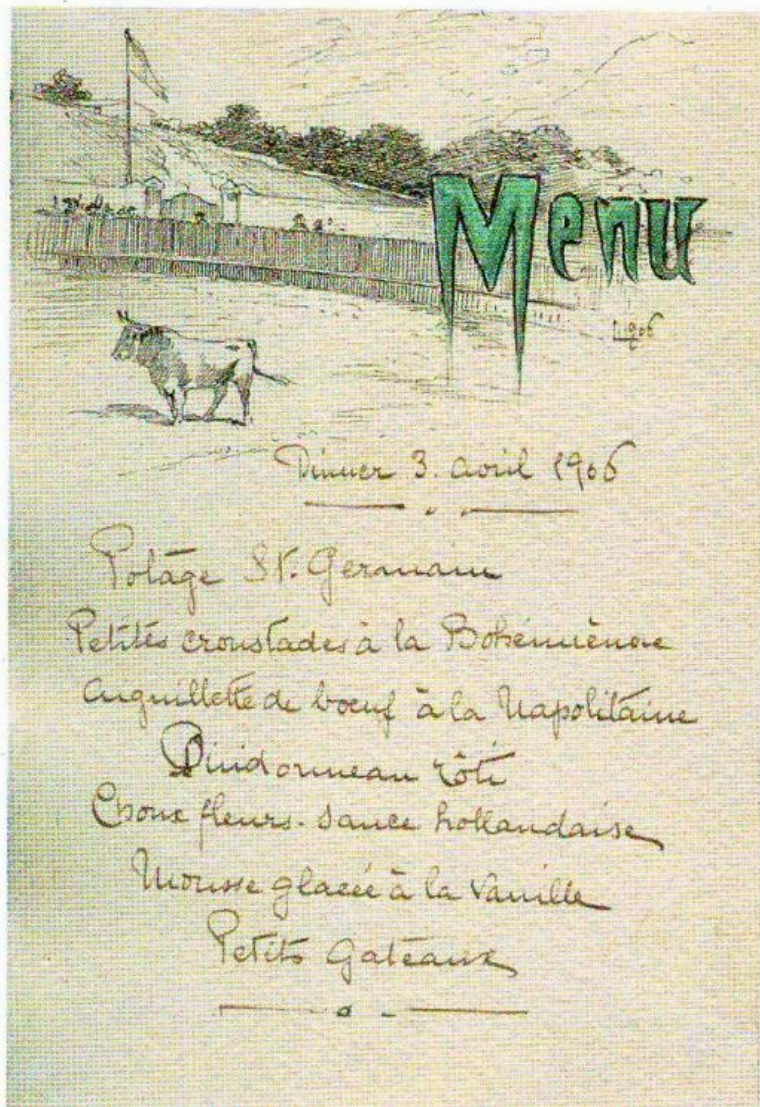 Menu
1906
Dinner 3. avril 1906
Potage St. Germain
Petites croustades à la Bohémiènne
Aiguillette de bœuf à la Napolitaine
Dindonneau rôti
Choux fleurs. sauce hollandaise
Mousse glacée à la Vanille
Petits Gateaux